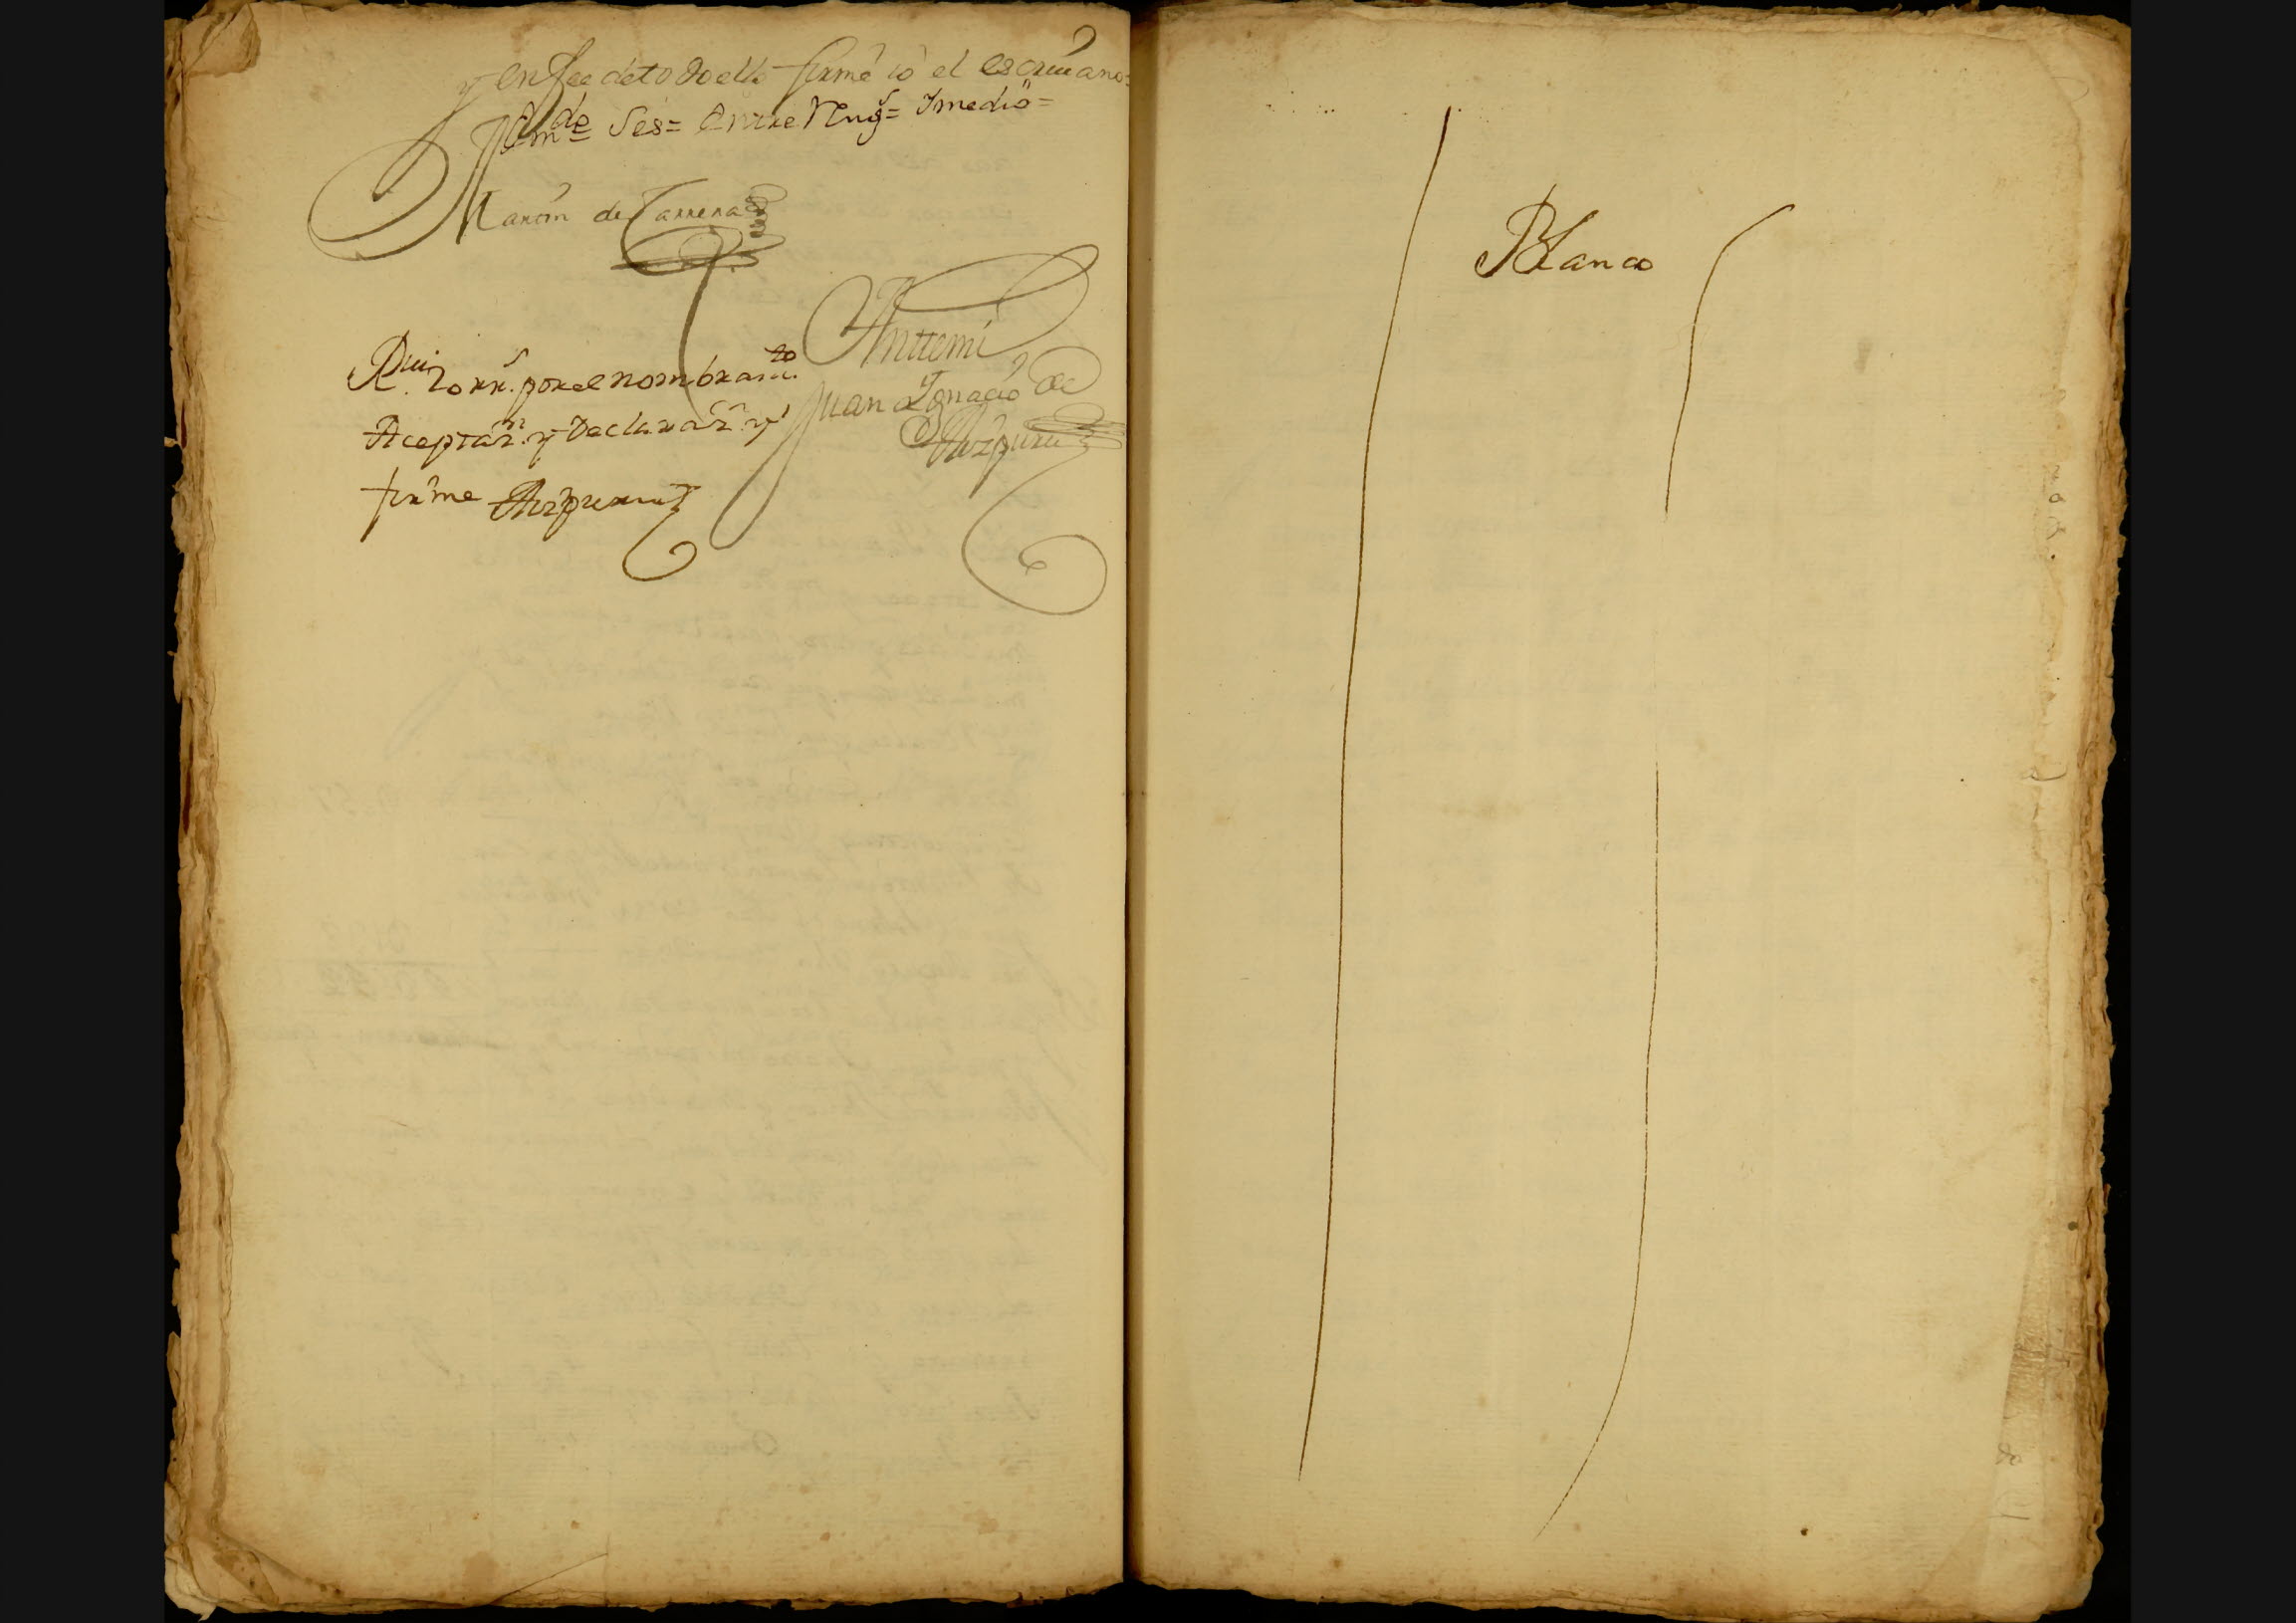 y en fee de todo ello firmé io el escriuano=
Em.do Ses= Entre Rengs= Y medio=
Martin de Larrena
Anttemi
Juan Ygnacio de
Aizpuru
R.vi 20 rr.s por el nombram.to
Aceptaz.n y Declaraz.n y
firme Aizpuru
Blanco